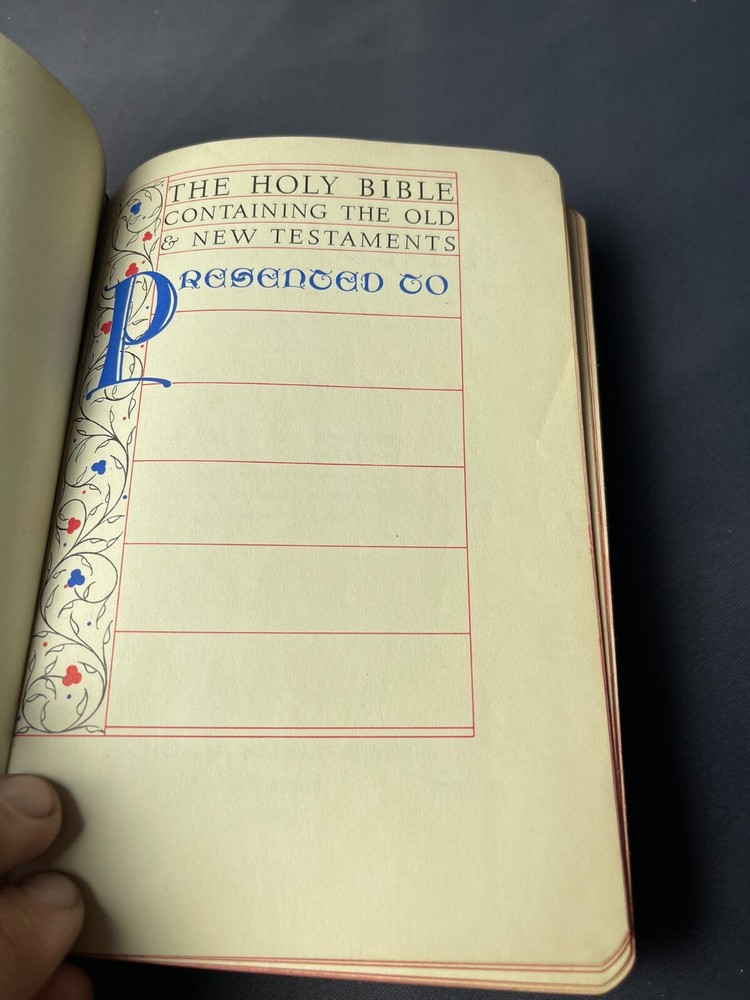 THE HOLY BIBLE
CONTAINING THE OLD
& NEW TESTAMENTS
PRESENTED TO